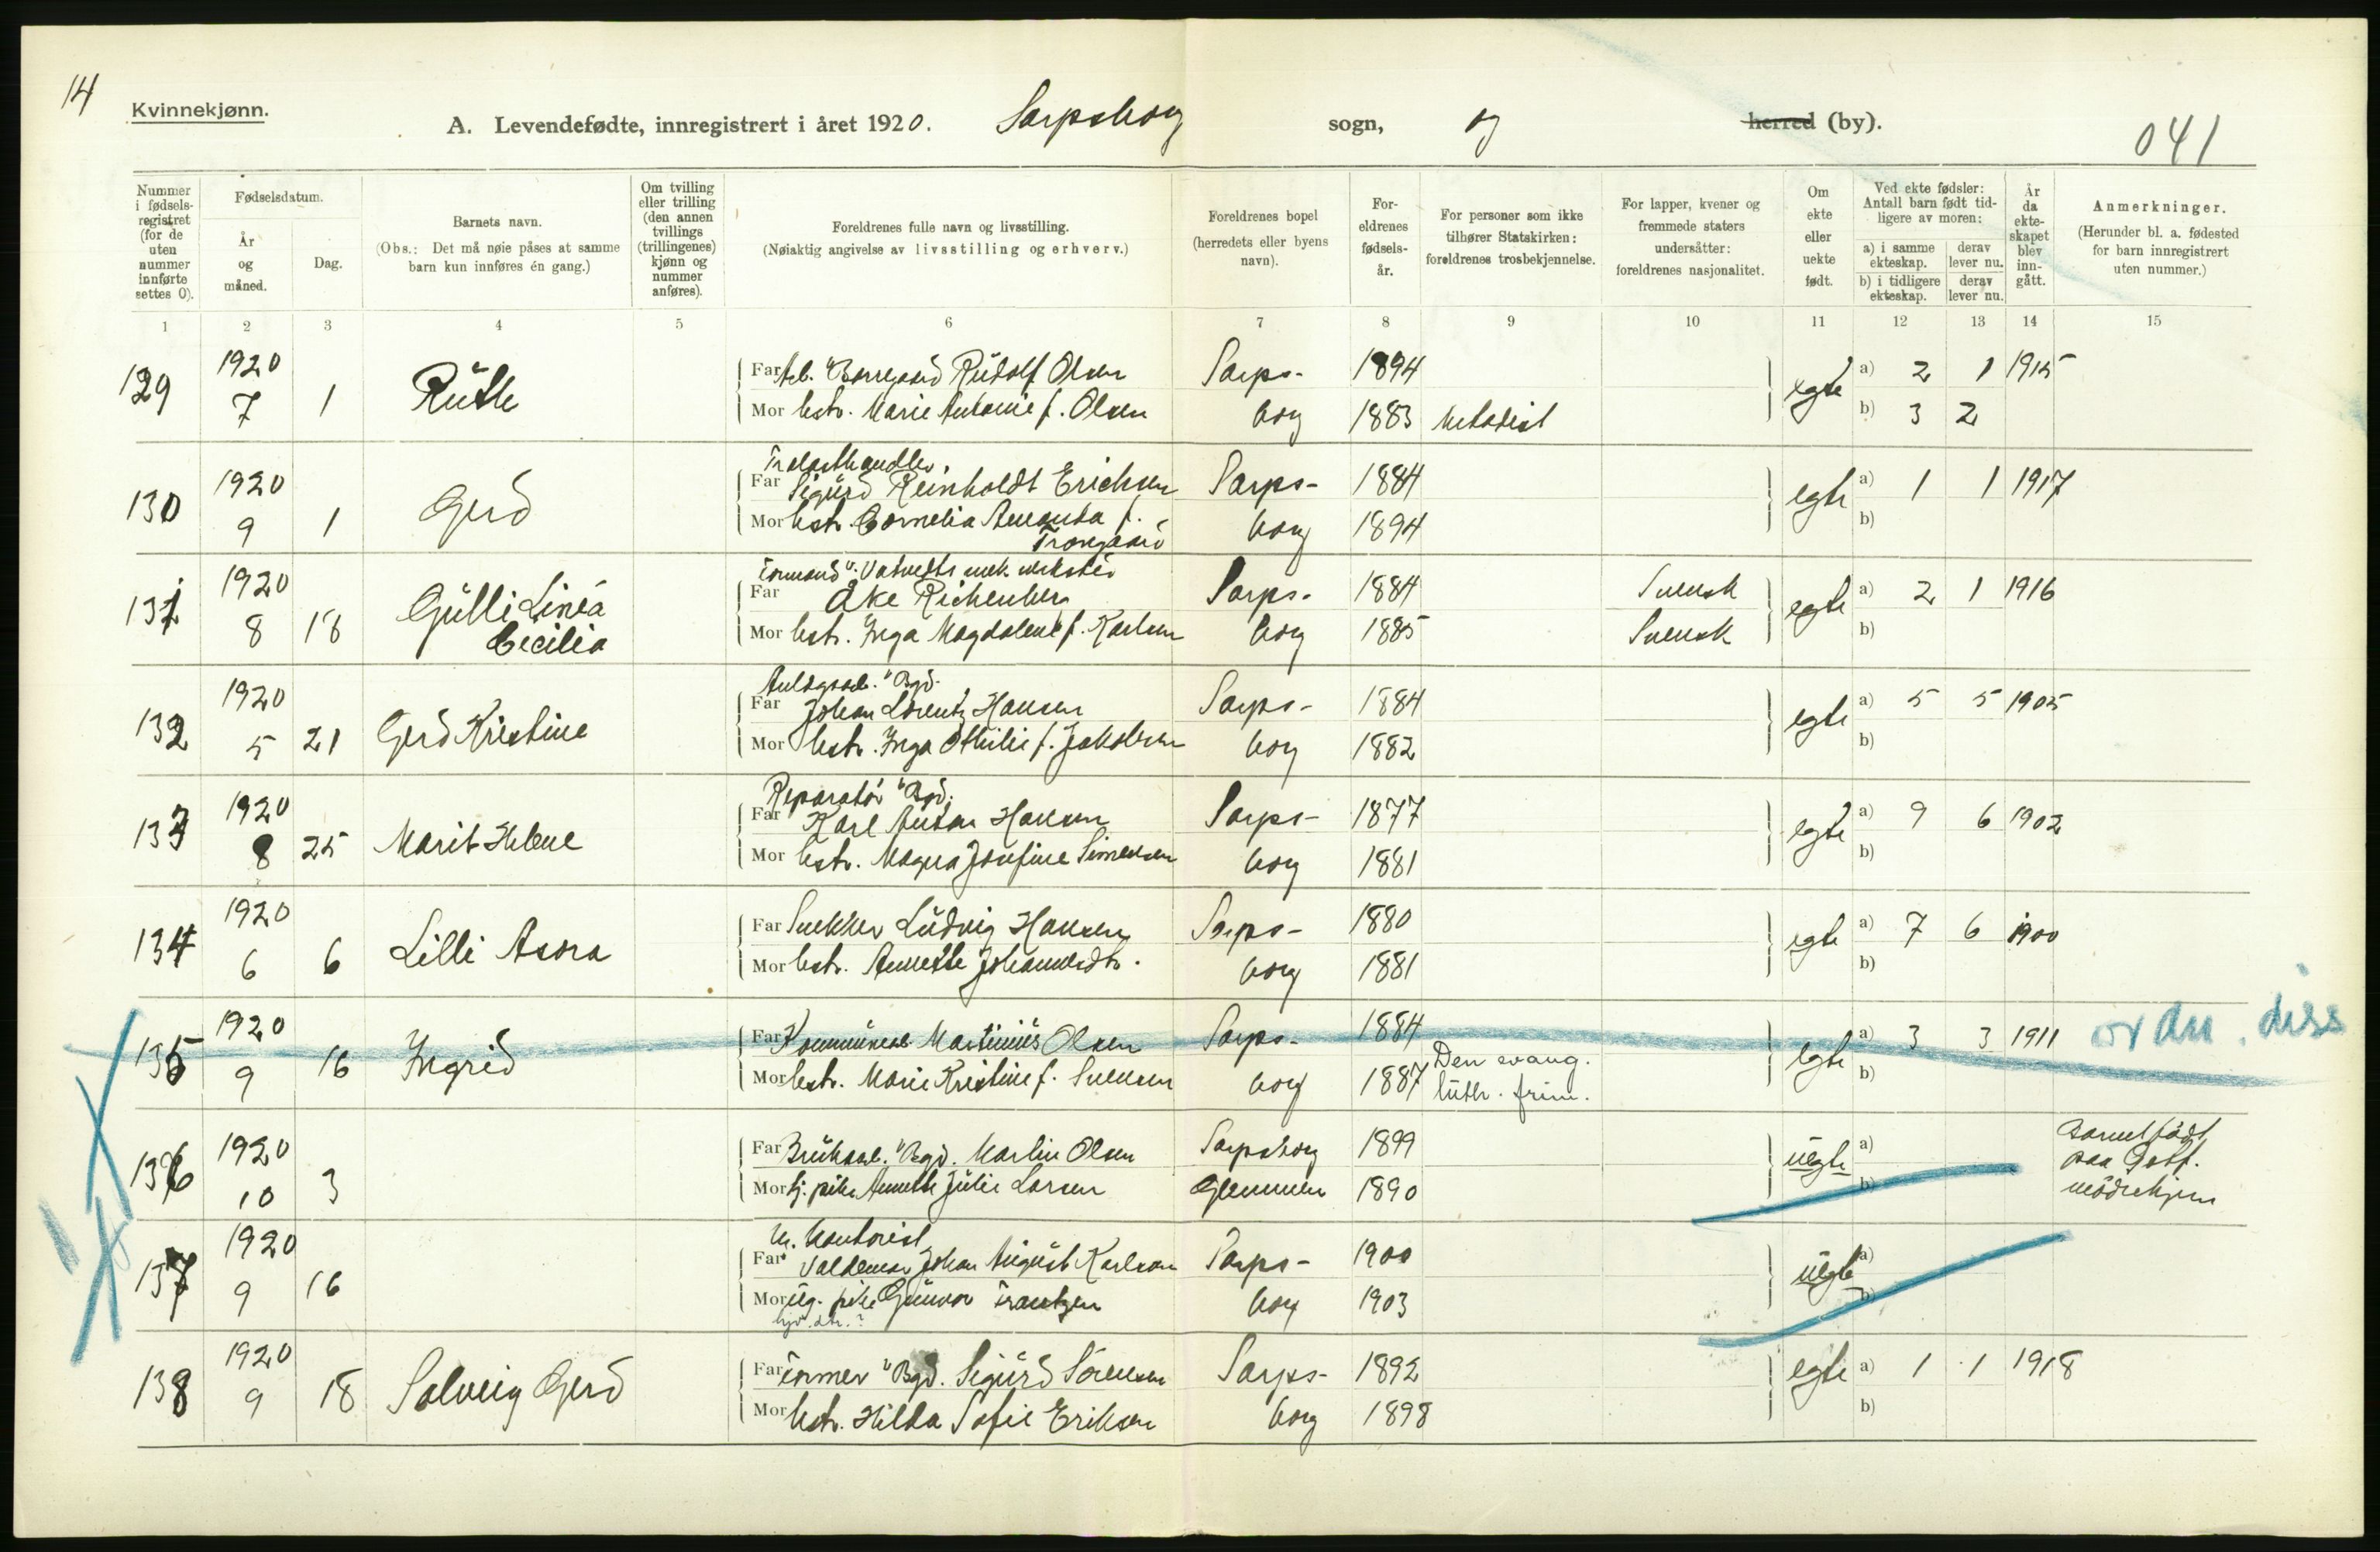 14
Kvinnekjønn.
A. Levendefødte, innregistrert i året 1920. Sarpsborg sogn, og herred (by).
041
Nummer i fødsels-registret (for de uten nummer innførte settes 0).
Fødselsdatum.
År og måned.
Dag.
Barnets navn.
(Obs.: Det må nøie påses at samme barn kun innføres én gang.)
Om tvilling eller trilling (den annen tvillings (trillingenes) kjønn og nummer anføres).
Foreldrenes fulle navn og livsstilling.
(Nøiaktig angivelse av livsstilling og erhverv.)
Foreldrenes bopel (herredets eller byens navn).
For-eldrenes fødsels-år.
For personer som ikke tilhører Statskirken: foreldrenes trosbekjennelse.
For lapper, kvener og fremmede staters undersåtter: foreldrenes nasjonalitet.
Om ekte eller uekte født.
Ved ekte fødsler: Antall barn født tid-ligere av moren:
a) i samme ekteskap.
derav lever nu.
b) i tidligere ekteskap.
derav lever nu.
År da ekte-skapet blev inn-gått.
Anmerkninger.
(Herunder bl. a. fødested for barn innregistrert uten nummer.)
1 2 3 4 5 6 7 8 9 10 11 12 13 14 15
129 1920 7 1 Rúth
Far Arb. v Borregaard Rúdolf Olsen Sarps- 1894 egte a) 2 1 1915
Mor hstr. Marie Antonie f. Olsen borg 1883 Metodist b) 3 2
Trælasthandler.
130 1920 9 1 Gerd
Far Sigúrd Reinholdt Erichsen Sarps- 1884 egte a) 1 1 1917
Mor hstr. Cornelia Amanda f. borg 1894 b)
131 1920 8 18 Gúlli Linéa Cecilia
Formand v. mek. verksted
Far Åke Richenberg Sarps- 1884 Svensk egte a) 2 1 1916
Mor hstr. Inga Magdalene f. Karlsen borg 1885 Svensk b)
132 1920 5 21 Gerd Kristine
Anlægsarb. v Bgd.
Far Johan Lorentz Hansen Sarps- 1884 egte a) 5 5 1905
Mor hstr. Inga Othilie f. Jakobsen borg 1882 b)
133 1920 8 25 Marit Helene
Reparatör v Bgd.
Far Karl Anton Hansen Sarps- 1877 egte a) 9 6 1902
Mor hstr. Magna Josefine Simensen borg 1881 b)
134 1920 6 6 Lilli Asora
Far Snekker Lúdvig Hansen Sarps- 1880 egte a) 7 6 1900
Mor hstr. Annette Johannesdtr. borg 1881 b)
135 1920 9 16 Ingrid
Far Kommúnearb. Martiniús Olsen Sarps- 1884 egte a) 3 3 1911
Mor hstr. Marie Kristine f. Svensen borg 1887 Den evang. lúth. frim. b)
diss
136 1920 10 3
Far Brúksarb. v Bgd. Martin Olsen Sarpsborg 1899 úegte a)
Mor tj. pike Annette Júlie Larsen Glemmen 1890 b)
Barnet födt paa mödrehjem
137 1920 9 16
Kontorist
Far Valdemar Johan Aúgúst Karlsson Sarps- 1900 úegte a)
Mor úg. pike Gúnvor Frantzen borg 1903 b)
138 1920 9 18 Solveig Gerd
Far Former v Bgd. Sigúrd Sörensen Sarps- 1892 egte a) 1 1 1918
Mor hstr. Hilda Sofie Eriksen borg 1898 b)